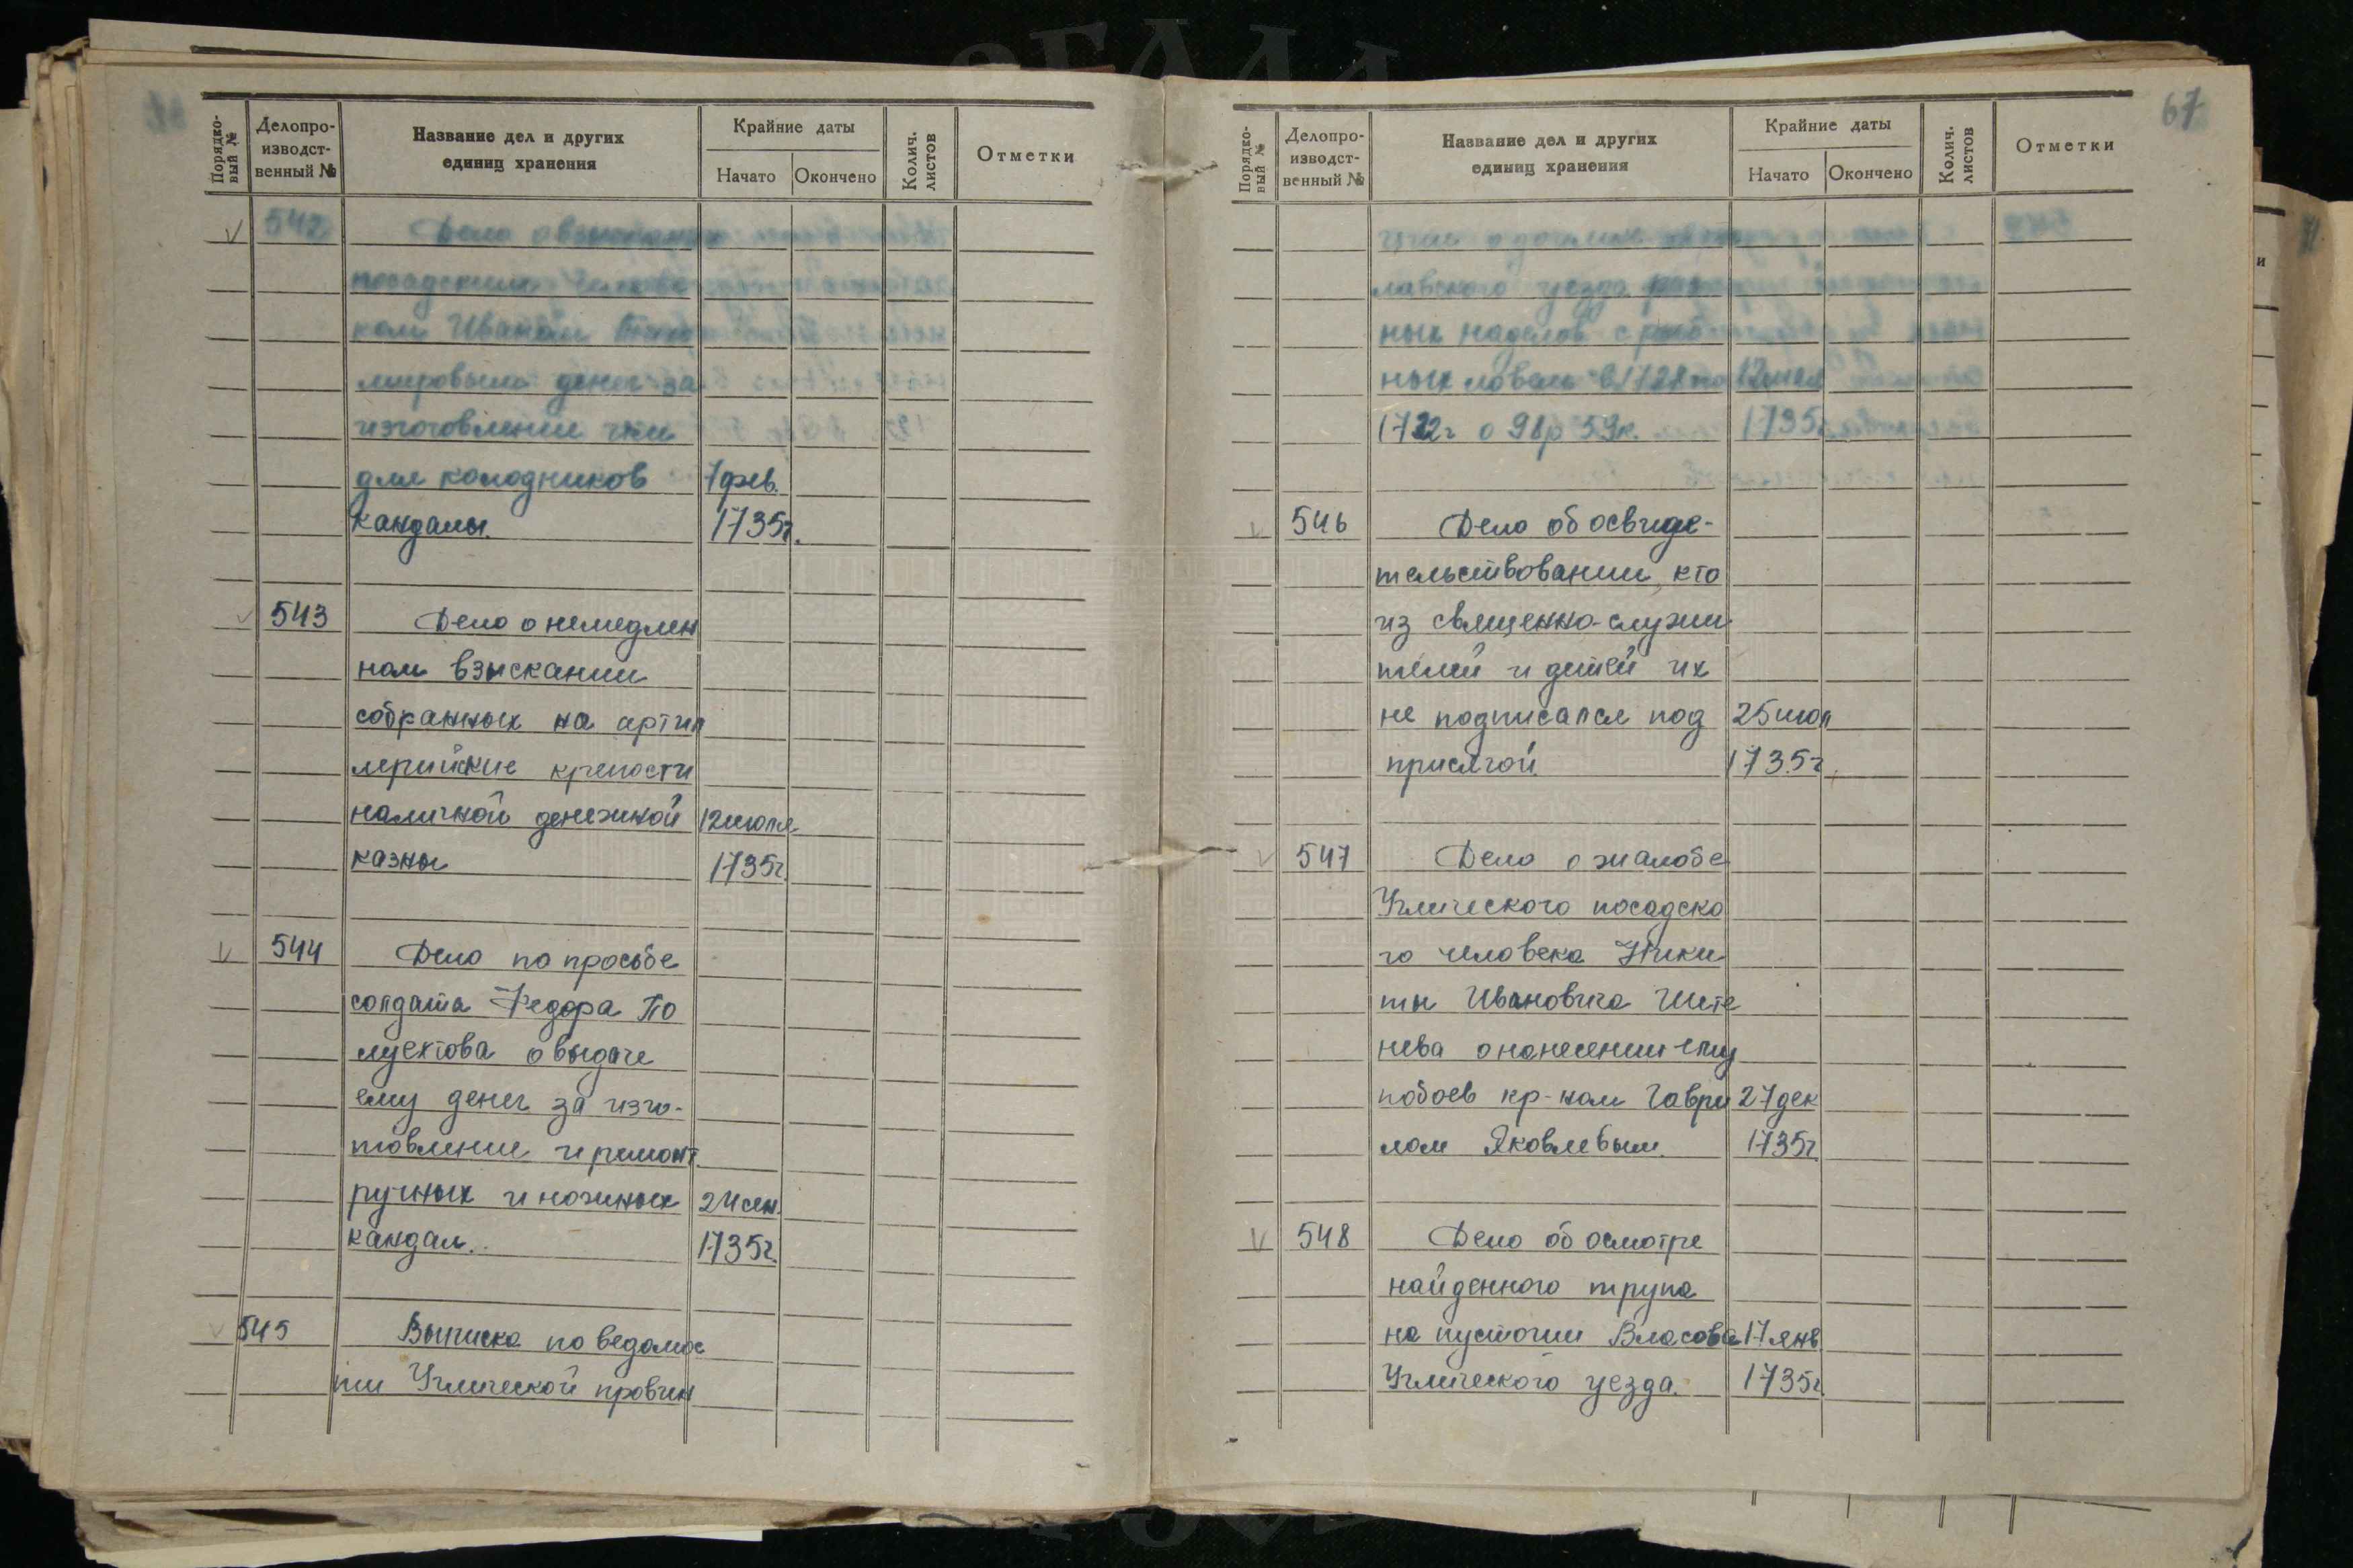 Порядко-
вый №
Делопро-
изводст-
венный №
Название дел и других
единиц хранения
Крайние даты
Начато
Окончено
Колич.
листов
Отметки
542 Дело о взыскании
посадским
ком Иваном
мировым денег за
изготовлении
для колодников 7 фев.
кандалы. 1735г.
543 Дело о немедлен
ном взыскании
собранных на артил
лерийские крепости
наличной денежной 12 июля
казны 1735г.
544 Дело по просьбе
солдата Федора По
луектова о выдаче
ему денег за изго-
товление и ремонт
ручных и ножных 24 сен.
кандал. 1735г.
545 Выписка по ведомос
ти Угличской провин
67
Порядко-
вый №
Делопро-
изводст-
венный №
Название дел и других
единиц хранения
Крайние даты
Начато
Окончено
Колич.
листов
Отметки
ции о
лавского уезда
ных наделов с рыб
ных ловель в 1728 по 12
1732г о 98р 59к. 1735г.
546 Дело об освиде-
тельствовании, кто
из священно-служи
телей и детей их
не подписался под 25 июл
присягой. 1735г.
547 Дело о жалобе
Угличского посадско
го человека Ники
ты Ивановича Шите
нева о нанесении ему
побоев кр-ном Гаври 27 дек
лом Яковлевым. 1735г.
548 Дело об осмотре
найденного трупа
на пустоши Власова 17 янв
Угличского уезда. 1735г.